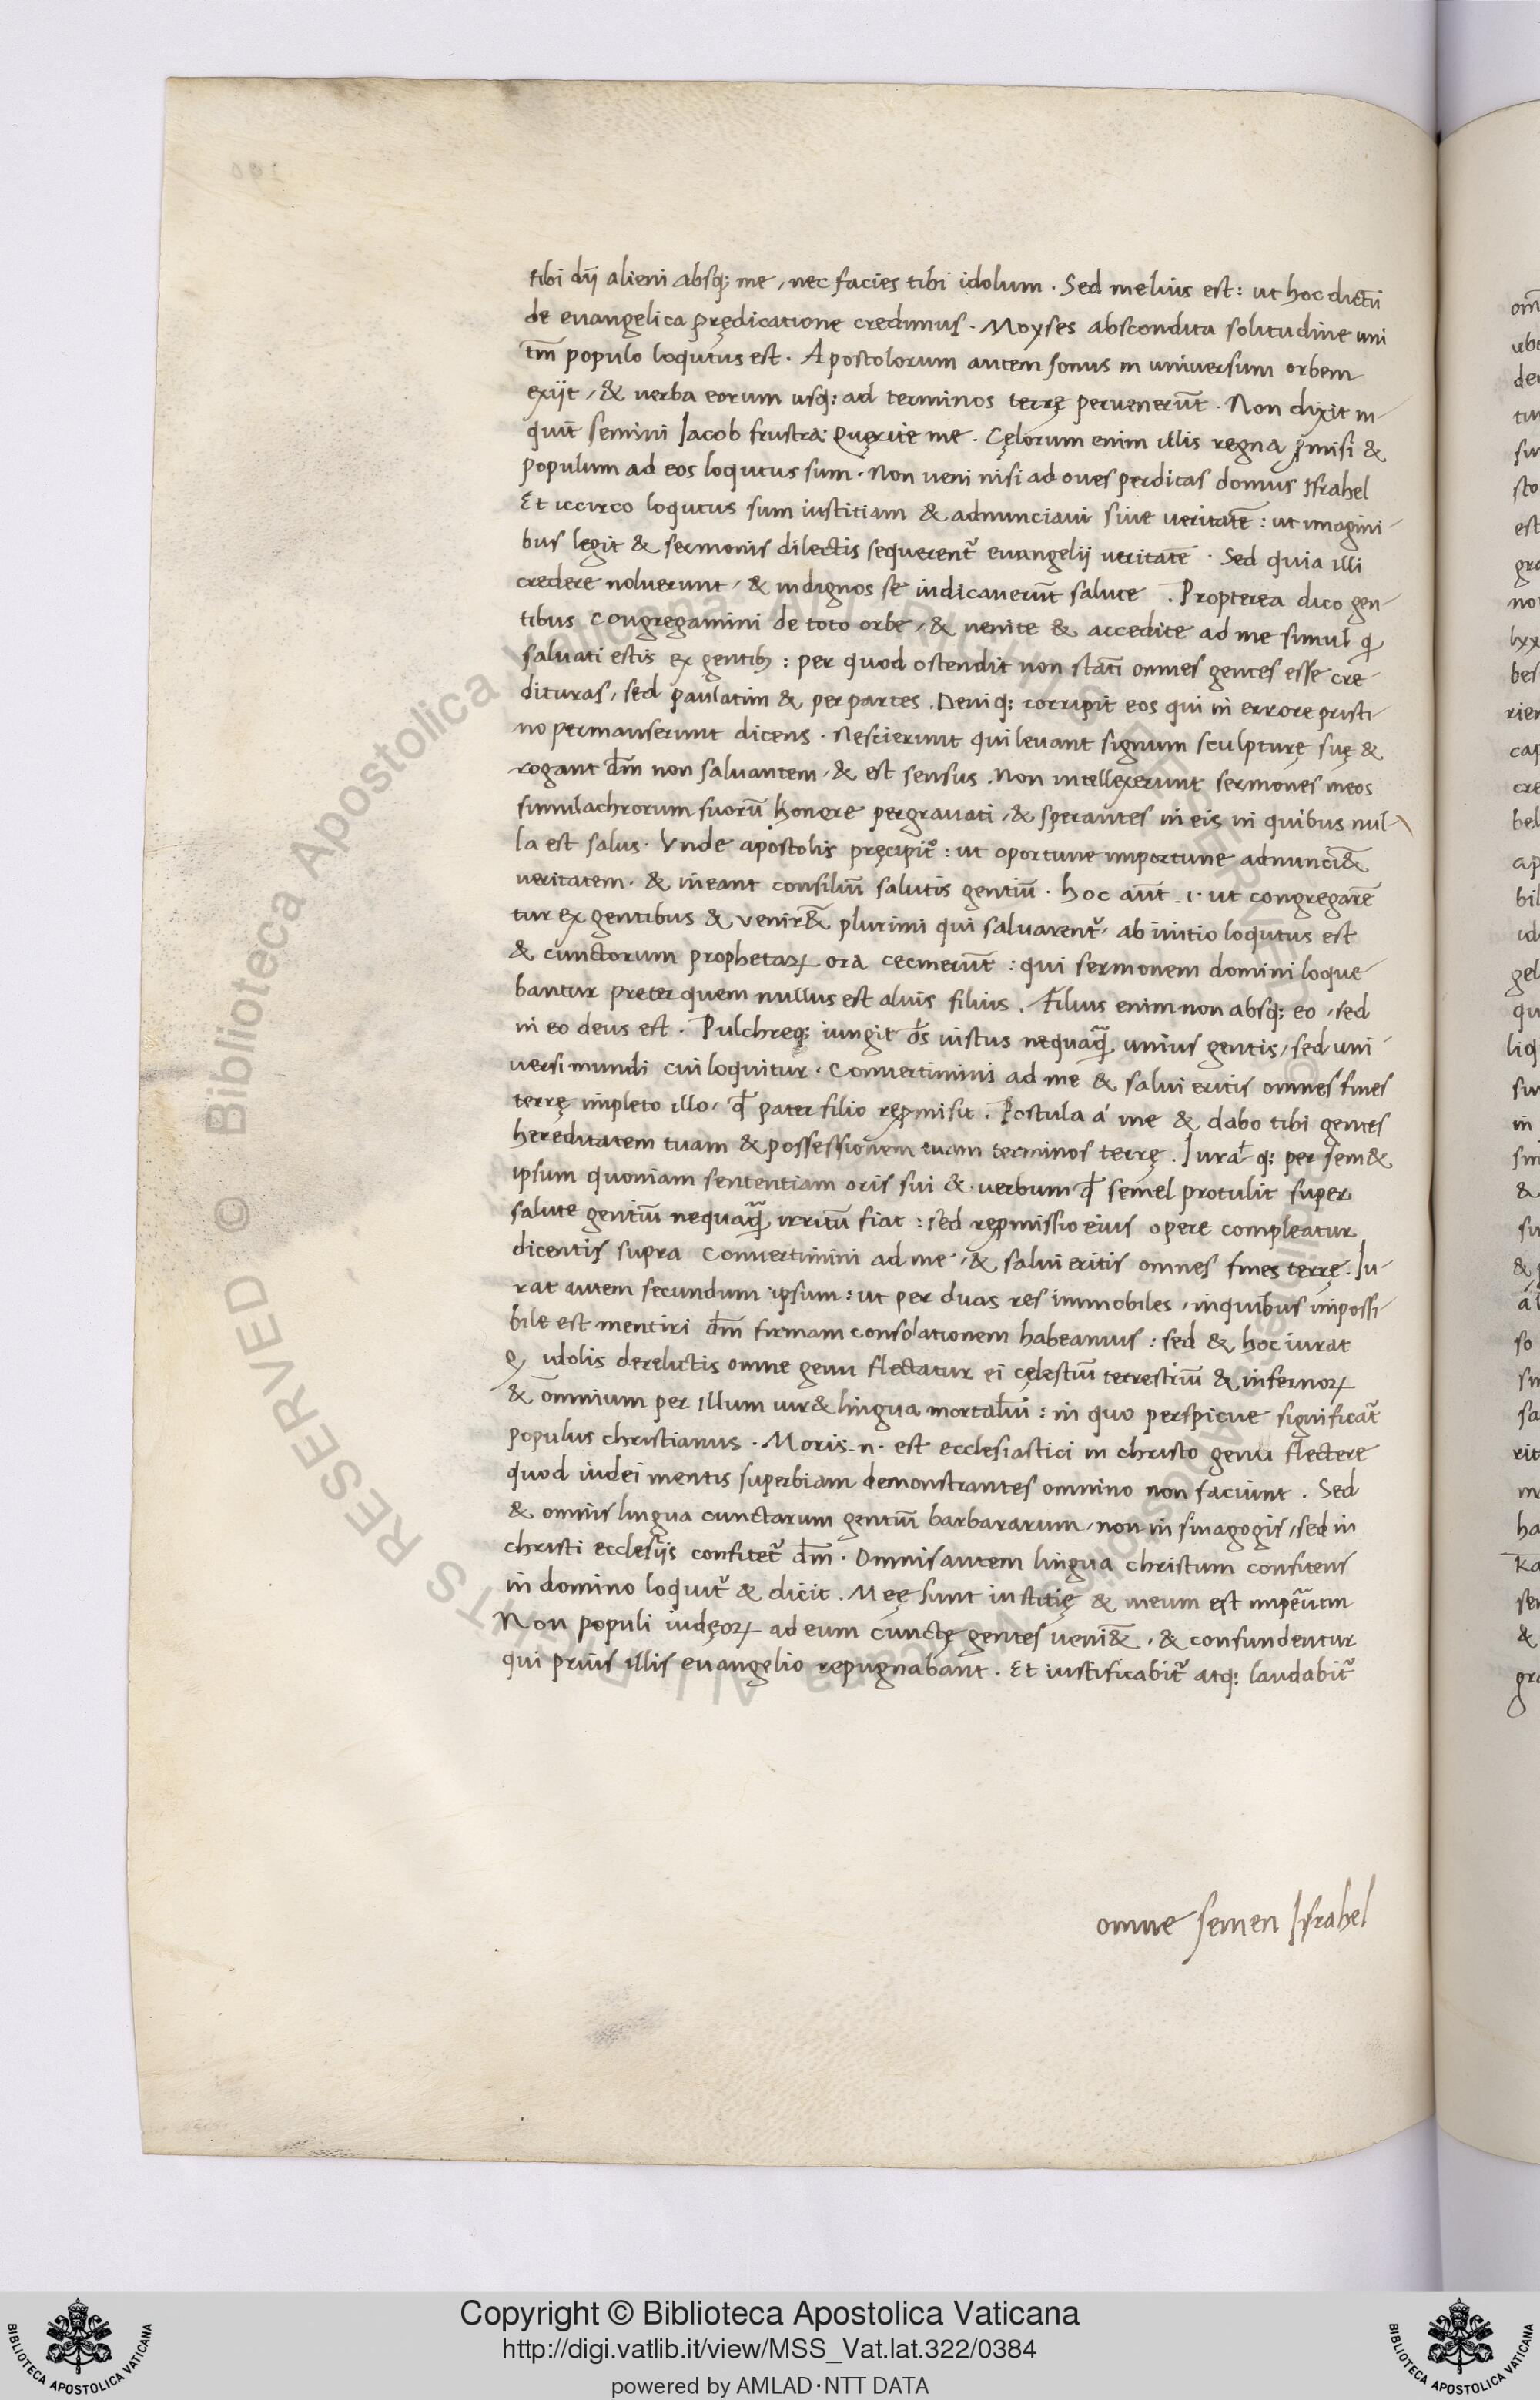 tibi dij alieni absq; me, nec facies tibi idolum. Sed melius est: ut hoc dictũ
de euangelica prędicatione credimus. Moyses abscondita solitudine uni
tm̃ populo loqutus est. Apostolorum autem sonus in universum orbem
exijt, & verba eorum usq: ad terminos terrę pervenerũt. Non dixit in-
quit semini Jacob frustra: Quęrite me. Cęlorum enim illis regna ꝓmisi &
populum ad eos loqutus sum. Non veni nisi ad oues perditas domus Israhel
Et iccirco loqutus sum iustitiam & adnunciavi sive veritatẽ: ut imagini-
bus legit & sermonis dilectis sequerent᷑ evangelij veritatẽ. Sed quia illi
credere noluerunt, & indignos se iudicaverũt salute. Propterea dico gen-
tibus Congregamini de toto orbe, & venite & accedite ad me simul q̃
saluati estis ex gentib;: per quod ostendit non statĩ omnes gentes esse cre-
dituras, sed paulatim & per partes. Deniq: corripit eos qui in errore pristi-
no permanserunt dicens. Nescierunt qui levant signum sculpturę suę &
rogant dm̃ non salvantem, & est sensus. Non intellexerunt sermones meos
simulachrorum suorũ honore pergravati, & sperantes in eis in quibus nul-
la est salus. Vnde apostolis pręcipit᷑: ut oportune importune adnunci&̃
veritatem. & ineant consiliũ salutis gentiũ. hoc aũt .i. ut congregarẽ
tur ex gentibus & venir&̃ plurimi qui saluarent᷑, ab initio loqutus est
& cunctorum prophetaꝝ ora cecinerũt: qui sermonem domini loque-
bantur preter quem nullus est alius filius. Filius enim non absq: eo, sed
in eo deus est. Pulchreq; iungit ds̃ iustus nequaq̃, unius gentis, sed uni-
versi mundi cui loquitur. Convertimini ad me & salvi eritis omnes fines
terrę impleto illo, qđ pater filio reꝓmisit. Postula á me & dabo tibi gentes
hereditatem tuam & possessionem tuam terminos terrę. Jurat q: per sem&
ipsum quoniam sententiam oris sui & verbum qđ semel protulit super
salute gentiũ nequaq̃, irritũ fiat: sed reꝓmissio eius opere compleatur
dicentis supra Convertimini ad me, & salvi eritis omnes fines terrę. Ju-
rat autem secundum ipsum: ut per duas res immobiles, in quibus impossi-
bile est mentiri dm̃ firmam consolationem habeamus: sed & hoc iurat
ꝙ idolis derelictis omne genu flectatur ei cęlestiũ terrestriũ & infernoꝝ
& omnium per illum iur& lingua mortaliũ: in quo perspicue significat᷑
populus christianus. Moris .n. est ecclesiastici in christo genu flectere
quod iudei mentis superbiam demonstrantes omnino non faciunt. Sed
& omnis lingua cunctarum gentiũ barbararum, non in sinagogis, sed in
christi ecclesijs confitet᷑ dm̃. Omnis autem lingua christum confitens
in domino loquit᷑ & dicit. Meę sunt iustitię & meum est imperium
Non populi iudęoꝝ ad eum cunctę gentes veni&̃. & confundentur
qui prius illis evangelio repugnabant. Et iustificabit᷑ atq: laudabit᷑
omne semen Israhel
Copyright © Biblioteca Apostolica Vaticana
http://digi.vatlib.it/view/MSS_Vat.lat.322/0384
powered by AMLAD·NTT DATA